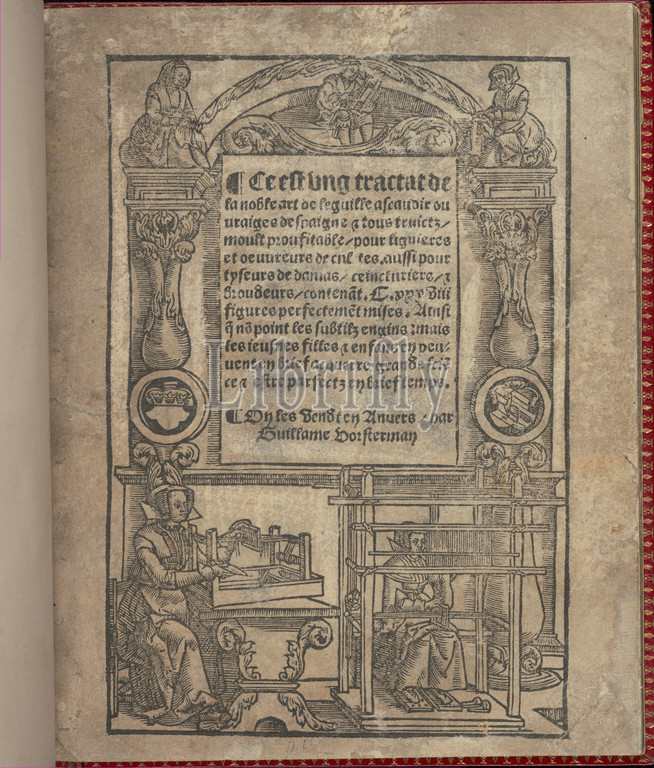 ¶ Ce est ung tractat de
la noble art de leguille ascauoir ou
uraiges de spaigne & tous
moult proufitable / pour
et oeuureurs de aussi pour
tyseurs de damas / ceincturiers / &
broudeurs / contenāt. C. xxxviii
figures perfectemēt mises. Ainsi
q̄ nō point les subtilz engins: mais
les ieusnes filles & enfans en peu⸗
uent en brief acquerre grande sciē
ce & estre parfectz en brief temps.
¶ On les vendt en Anvers par
Guillame Vorsterman
Librifly